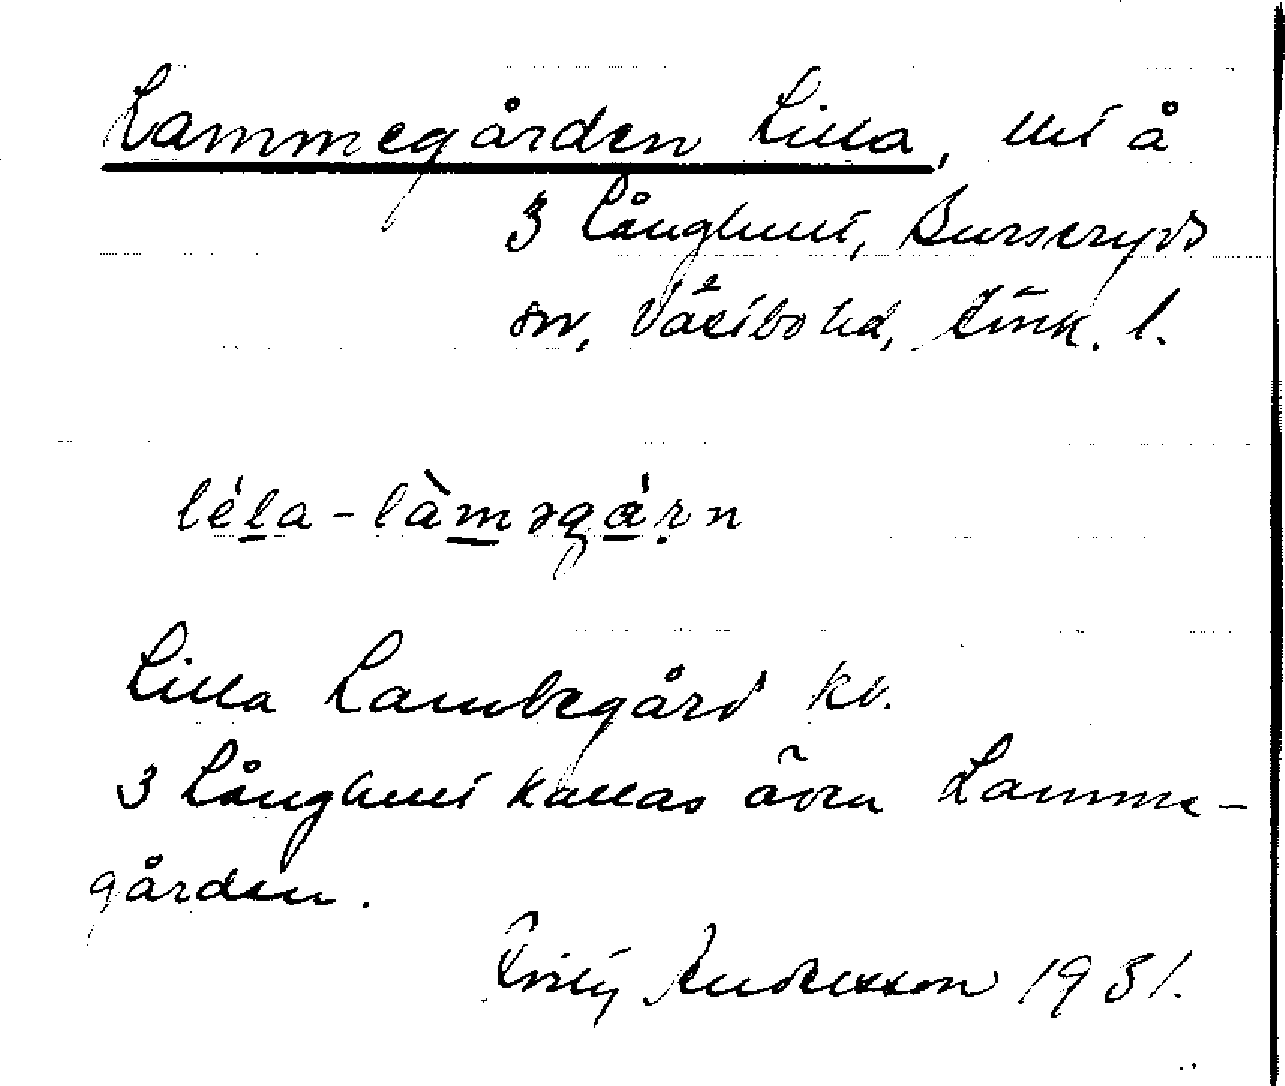 Lammegården Lilla, tht å
3 Långhult, Burseryds
sn, Västbo hd, Jönk. l.
lela-làməgárn
Lilla Lambegård kb.
3 Långhult kallas även Lamme-
gården.
Andersson 1931.